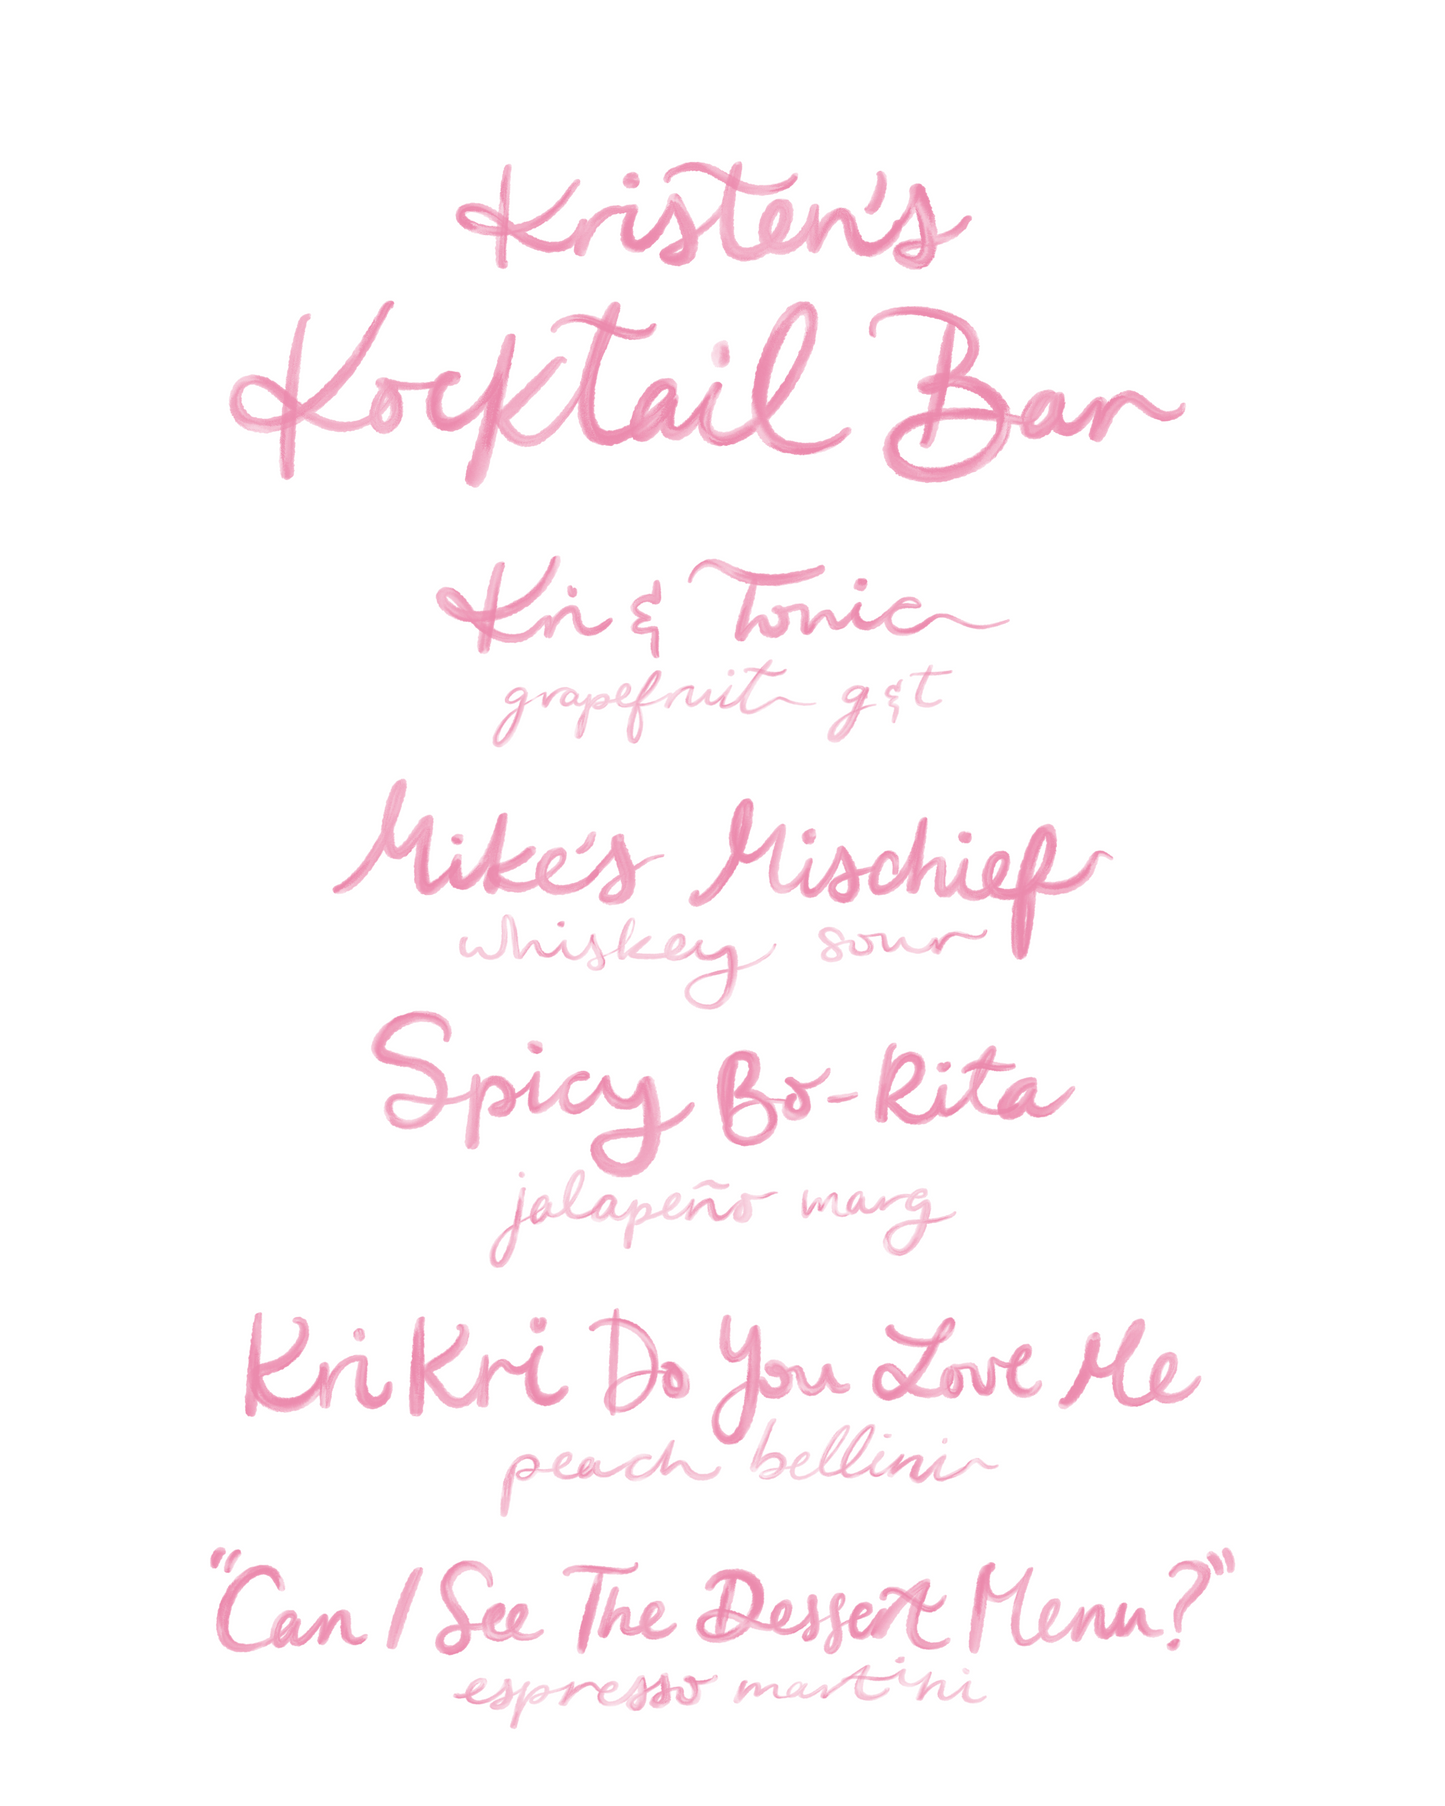 Kristen's
Kocktail Bar
Kri & Tonic
grapefruit g&t
Mike's Mischief
whiskey sour
Spicy Bo-Rita
jalapeño marg
Kri Kri Do You Love Me
peach bellini
"Can I See The Dessert Menu?"
espresso martini